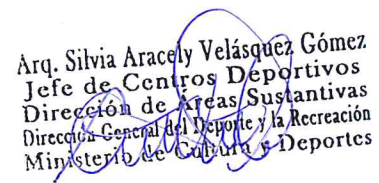 Arq. Silvia Aracely Velásquez Gómez
Jefe de Centros Deportivos
Dirección de Áreas Sustantivas
Dirección General del Deporte y la Recreación
Ministerio de Cultura y Deportes